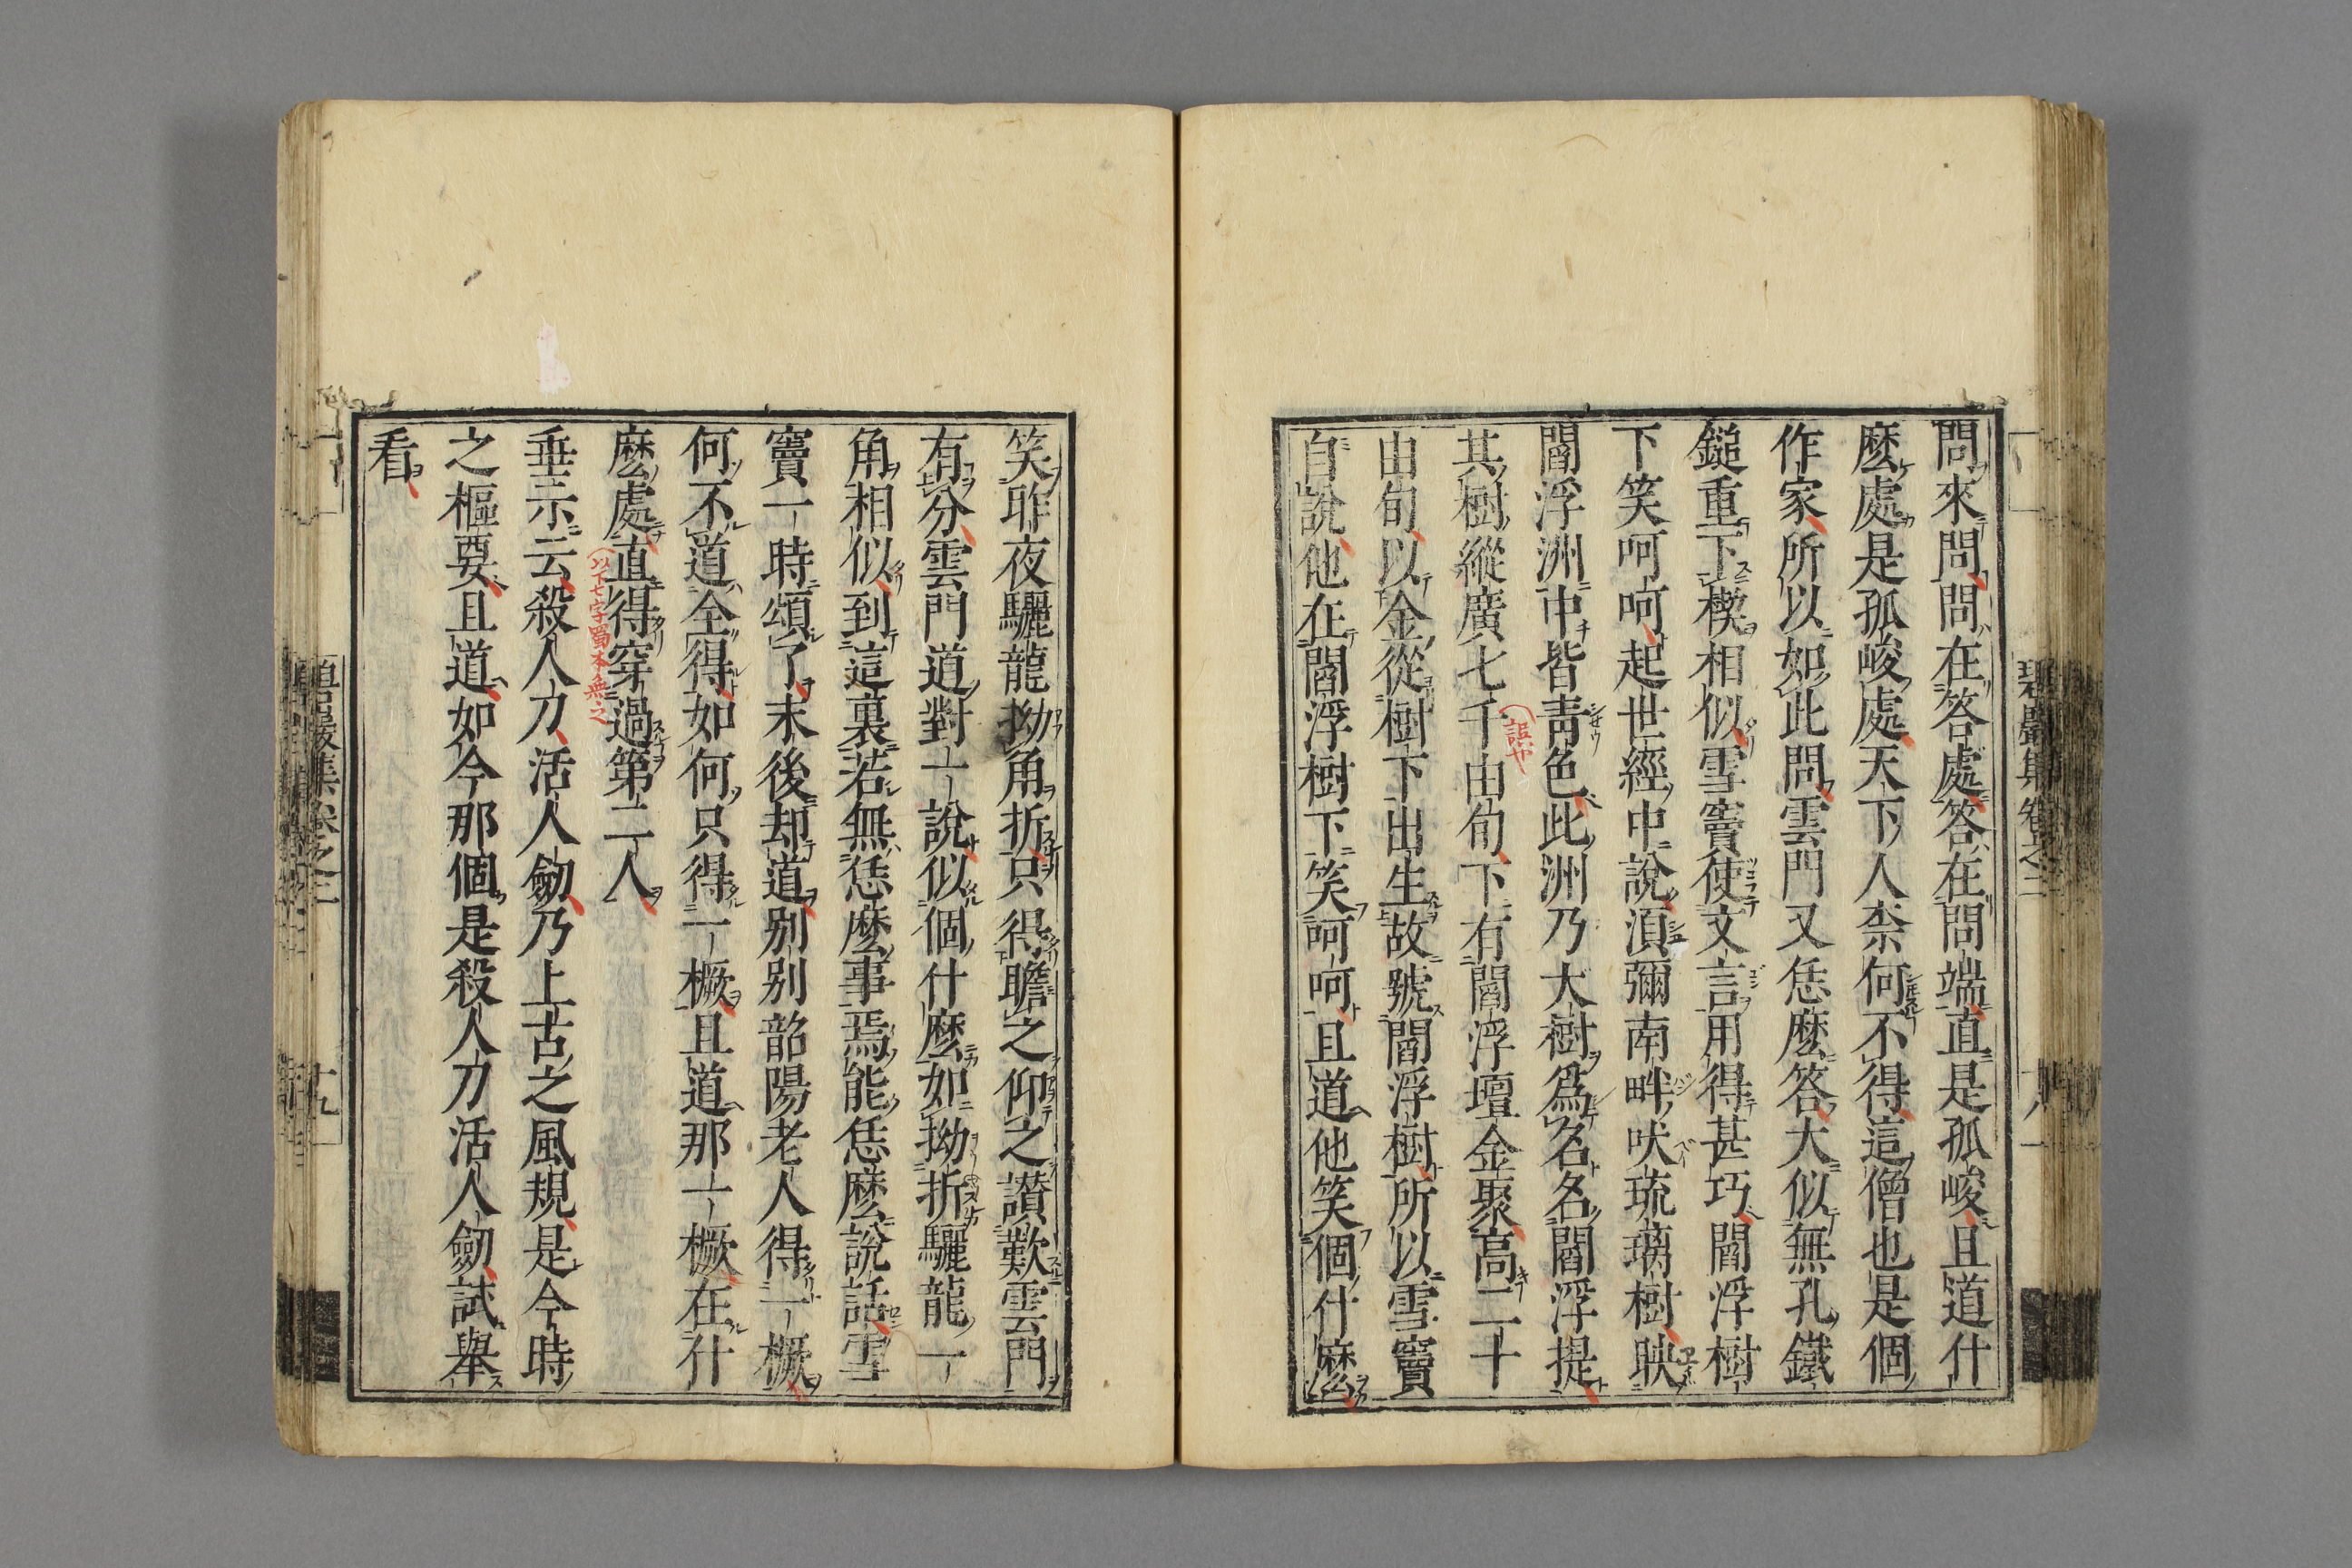 問來問問在答處答在問端直是孤峻且道什
麽處是孤峻處天下人柰何不得這僧也是個
作家所以如此問雲門又恁麽答大似無孔鐵
鎚重下楔相似雪竇使文言用得甚巧閻浮樹
下笑呵呵起世經中說湏彌南畔吠琉璃樹映
閻浮洲中皆青色此洲乃大樹爲名名閻浮提
其樹縱廣七千由旬下有閻浮壇金聚高二十
誤や
由旬以金從樹下出生故號閻浮樹所以雪竇
自說他在閻浮樹下笑呵呵且道他笑個什麽
碧巖集卷之二
十八
笑昨夜驪龍拗角折只得瞻之仰之讃歎雲門
有分雲門道對一說似個什麽如拗折驪龍一
角相似到這裏若無恁麽事焉能恁麽說話雪
竇一時頌了末後却道別別韶陽老人得一橛
何不道全得如何只得一橛且道那一橛在什
麽處直得穿過第二人
以下七字蜀本無之
垂示云殺人刀活人劒乃上古之風規是今時
之樞要且道如今那個是殺人刀活人劒試舉
看
碧巖集卷之二
十九